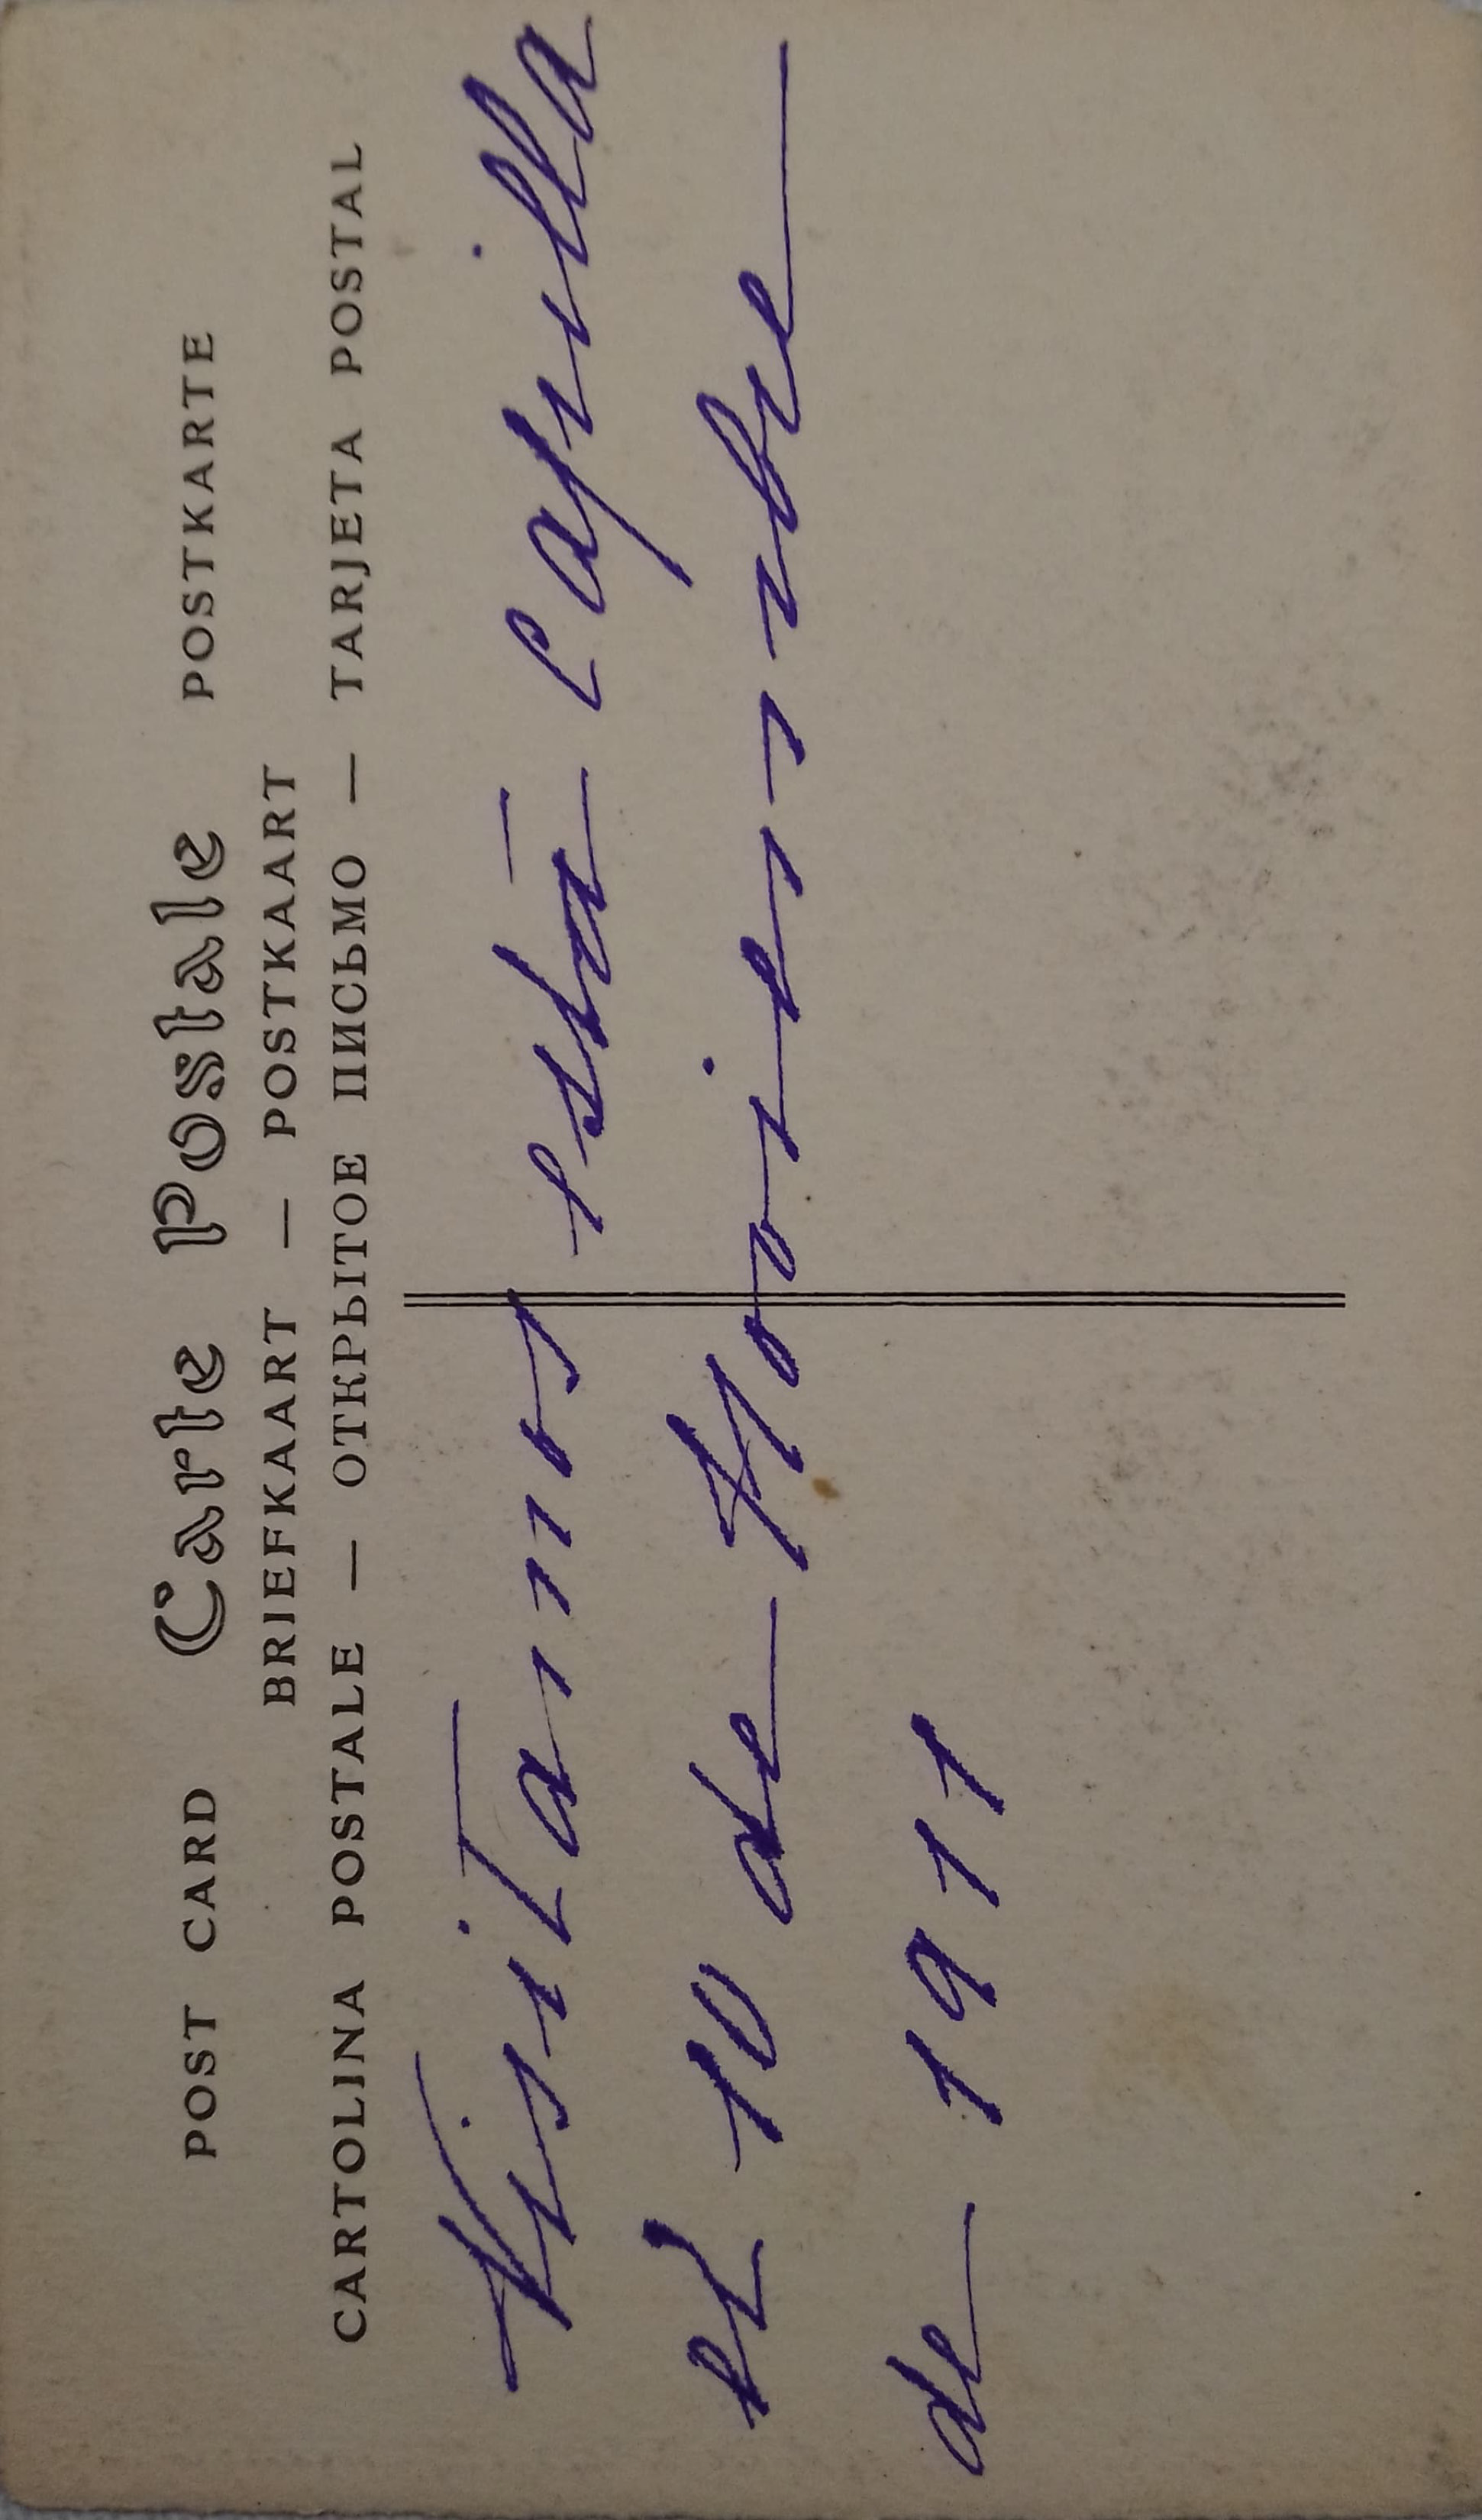 POST CARD Carte Postale POSTKARTE
BRIEFKAART — POSTKAART
CARTOLINA POSTALE — ОТКРЫТОЕ ПИСЬМО — TARJETA POSTAL
Visitamos esta capilla
el 10 de Noviembre
de 1911